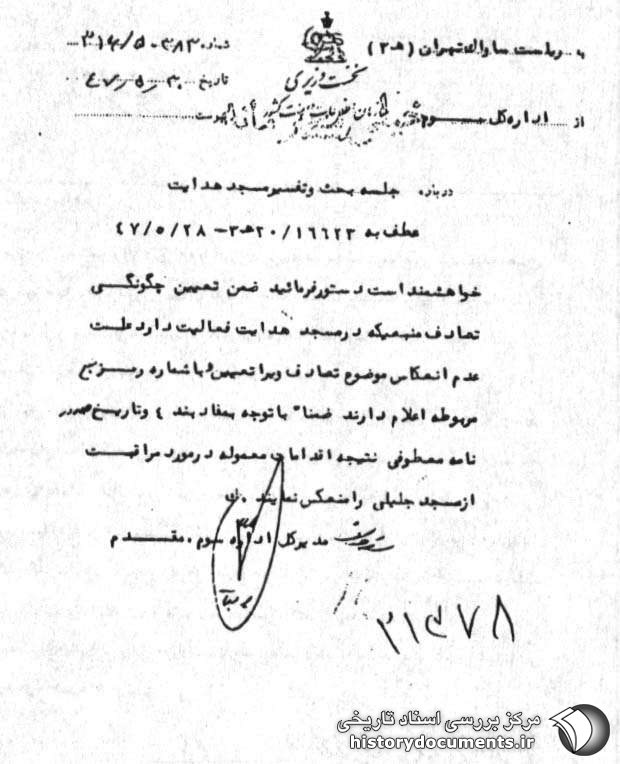 به ریاست ساواک تهران (ه ۳)
شماره ۳۸۳-۳۱۴/۵
نخست وزیری
تاریخ ۴۷/۵/۳۰
سازمان اطلاعات و امنیت کشور
از اداره کل سوم
پیوست
درباره جلسه بحث و تفسیر مسجد هدایت
عطف به ۲۰/۱۶۶۲۳ ه ۳ - ۴۷/۵/۲۸
خواهشمند است دستور فرمائید ضمن تعیین چگونگی
تصادف منبعیکه در مسجد هدایت فعالیت دارد علت
عدم انعکاس موضوع تصادف ویرا تعیین و با شماره رمز منبع
مربوطه اعلام دارند ضمنا" با توجه بمفاد بند ۴ و تاریخ صدور
نامه معطوفی نتیجه اقدامات معموله در مورد مراقبت
از مسجد جلیلی را منعکس نمایند.
مدیرکل اداره سوم. مقدم
۲۱۳۷۸
مرکز بررسی اسناد تاریخی
historydocuments.ir